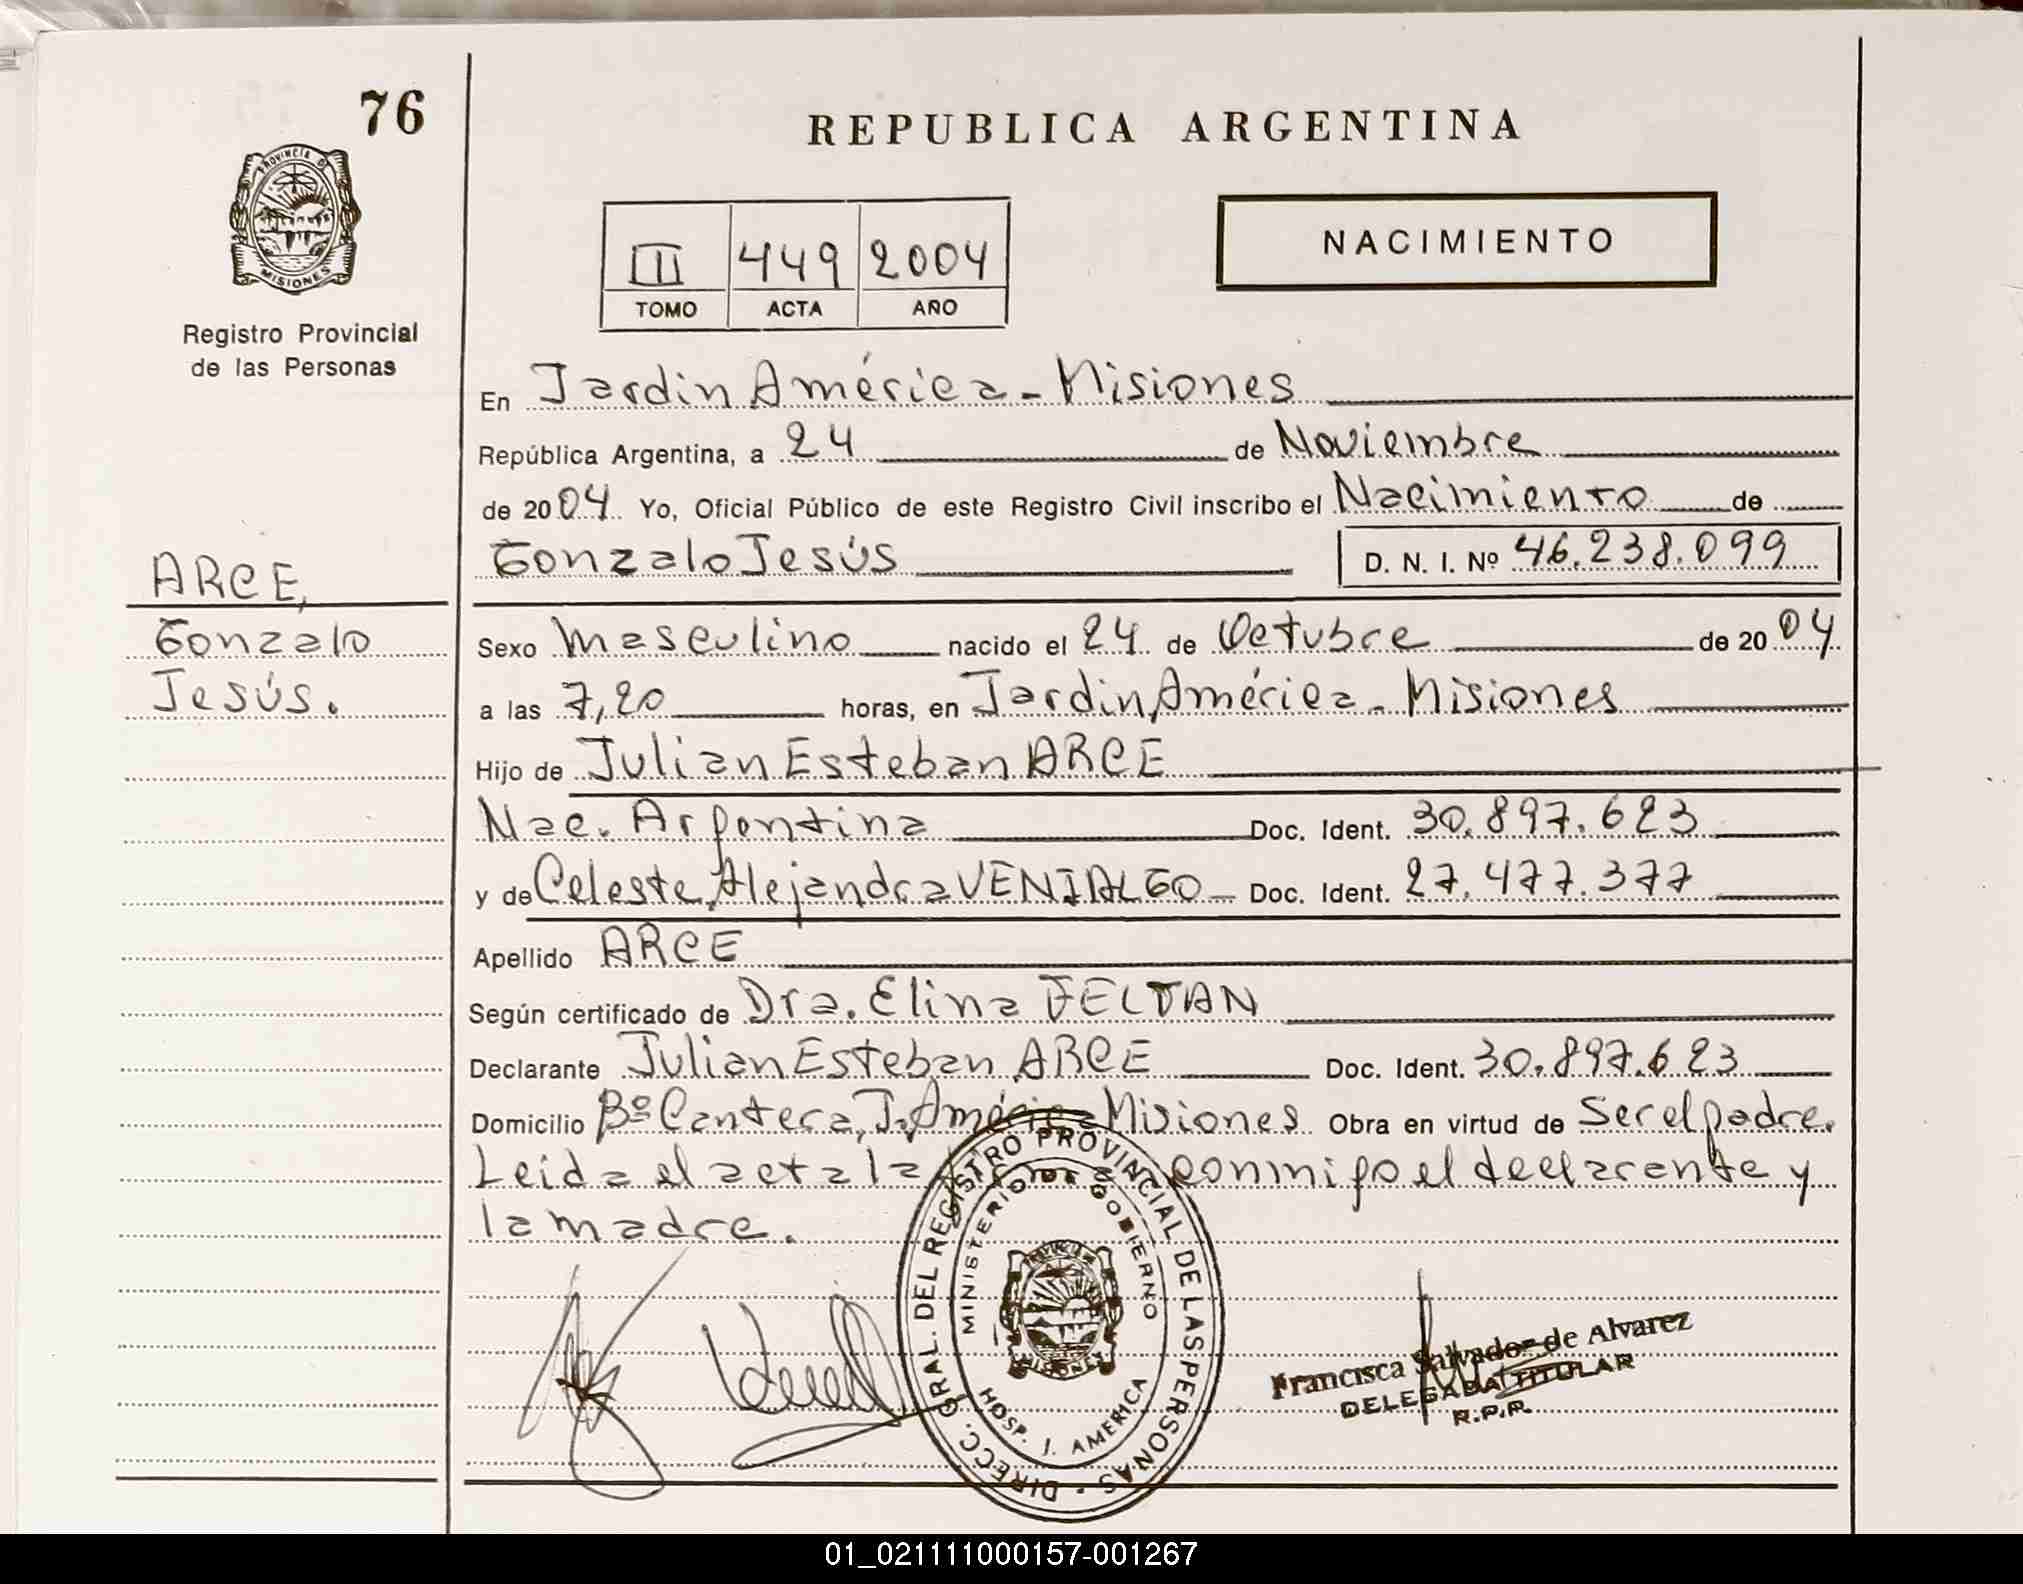 76
REPUBLICA ARGENTINA
PROVINCIA DE
MISIONES
Registro Provincial
de las Personas
III 449 2004
TOMO ACTA AÑO
NACIMIENTO
En Jardin América - Misiones
República Argentina, a 24 de Noviembre
de 2004 Yo, Oficial Público de este Registro Civil inscribo el Nacimiento de
Gonzalo Jesús D. N. I. Nº 46.238.099
ARCE,
Gonzalo
Jesús.
Sexo Masculino nacido el 24 de Octubre de 2004
a las 7,20 horas, en Jardin América - Misiones
Hijo de Julian Esteban ARCE
Nac. Argentina Doc. Ident. 30.897.623
y de Celeste Alejandra VENIALGO Doc. Ident. 27.477.377
Apellido ARCE
Según certificado de Dra. Elina
Declarante Julian Esteban ARCE Doc. Ident. 30.897.623
Domicilio Bº Cantera, J. América Misiones Obra en virtud de Ser el padre.
Leida el acta la conmigo el declarante y
la madre.
DIRECC. GRAL. DEL REGISTRO PROVINCIAL DE LAS PERSONAS
MINISTERIO DE GOBIERNO
MISIONES
HOSP. J. AMERICA
Francisca Salvador de Alvarez
DELEGADA TITULAR
R.P.P.
01_021111000157-001267